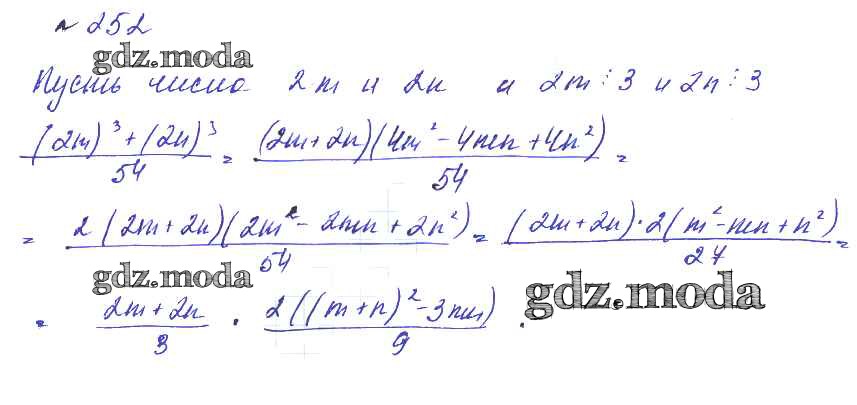 № 252
gdz.moda
Пусть числа 2m и 2n и 2m⋮3 и 2n⋮3
((2m)³+(2n)³)/54 = ((2m+2n)(4m²-4mn+4n²))/54 =
= (2(2m+2n)(2m²-2mn+2n²))/54 = ((2m+2n)·2(m²-mn+n²))/27 =
gdz.moda
gdz.moda
= (2m+2n)/3 · (2((m+n)²-3nm))/9 .